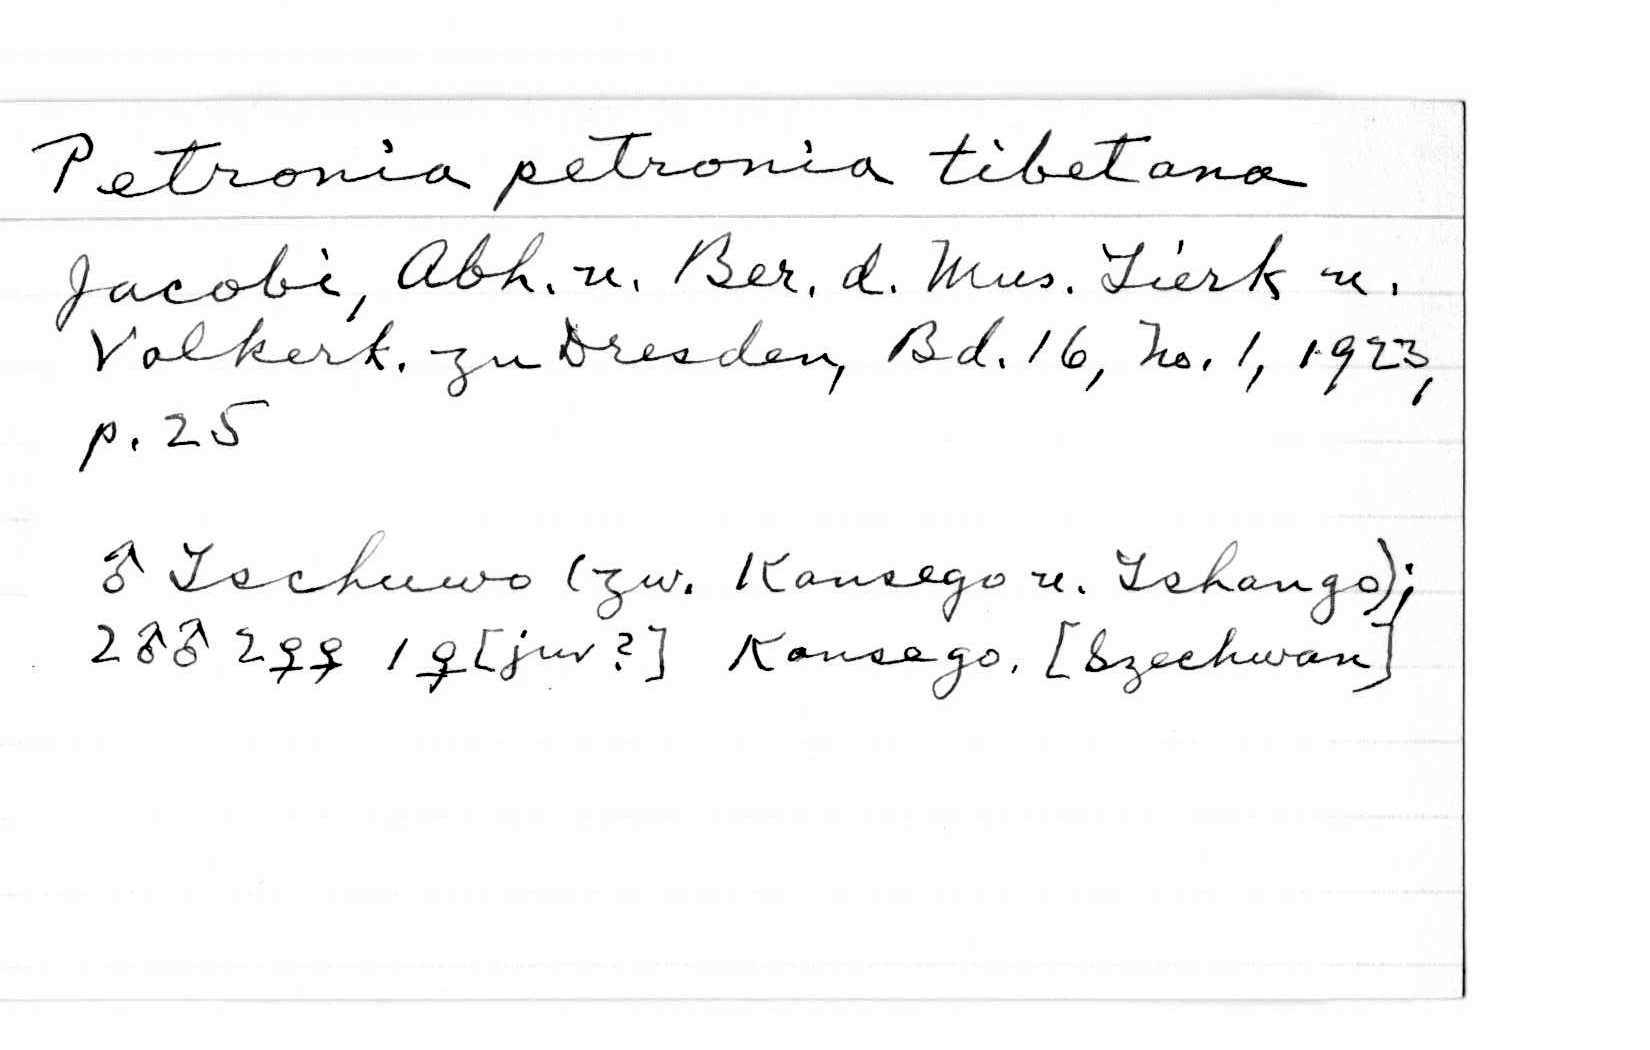 Petronia petronia tibetana
Jacobi, Abh. u. Ber. d. Mus. Tierk u.
Volkerk. zu Dresden, Bd. 16, No. 1, 1923,
p. 25
♂ Tschuwo (zw. Kansego u. Tshango);
2♂♂ 2♀♀ 1♀[juv?] Kansego. [Szechwan]